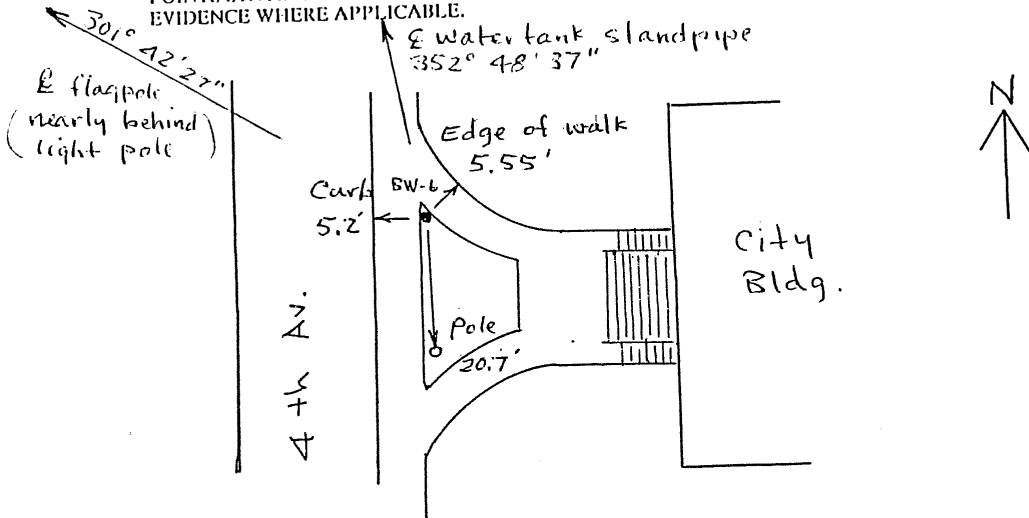 EVIDENCE WHERE APPLICABLE.
301° 42'27"
℄ flagpole
(nearly behind
light pole)
℄ water tank standpipe
352° 48' 37"
N
Edge of walk
5.55'
Curb
5.2'
BW-6
City
Bldg.
Pole
20.7'
4th Av.